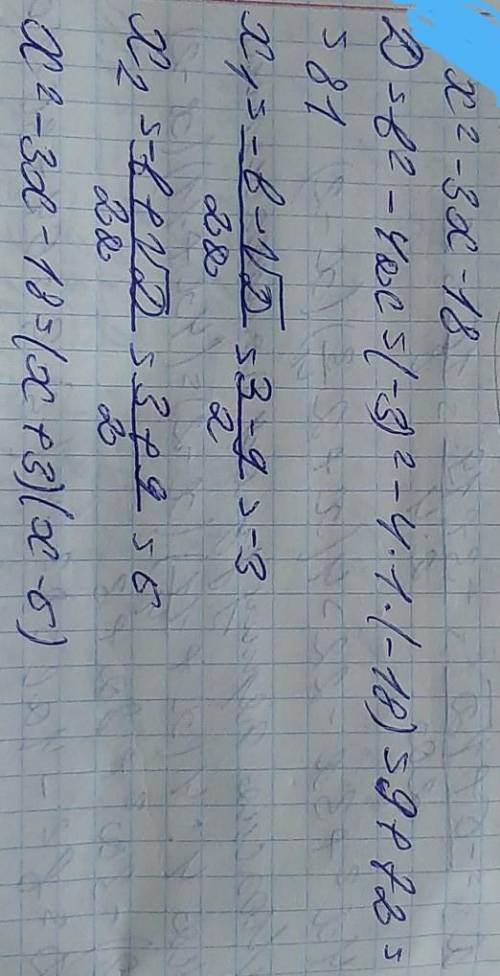 x² - 3x - 18
D = b² - 4ac = (-3)² - 4·1·(-18) = 9 + 72 =
= 81
x₁ = (-b - √D)/2a = (3 - 9)/2 = -3
x₂ = (-b + √D)/2a = (3 + 9)/2 = 6
x² - 3x - 18 = (x + 3)(x - 6)